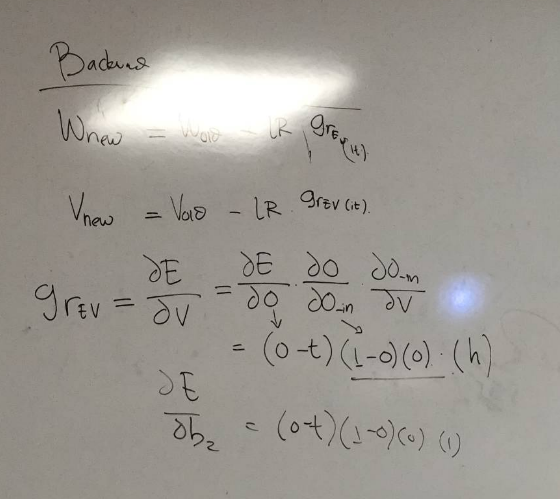 Backward
Wnew = Wold - LR grEw(it)
Vnew = Vold - LR grEV(it).
grEV = ∂E/∂V = ∂E/∂O · ∂O/∂O_in · ∂O_in/∂V
= (O-t)(1-O)(O) · (h)
∂E/∂b₂ = (O-t)(1-O)(O) (1)